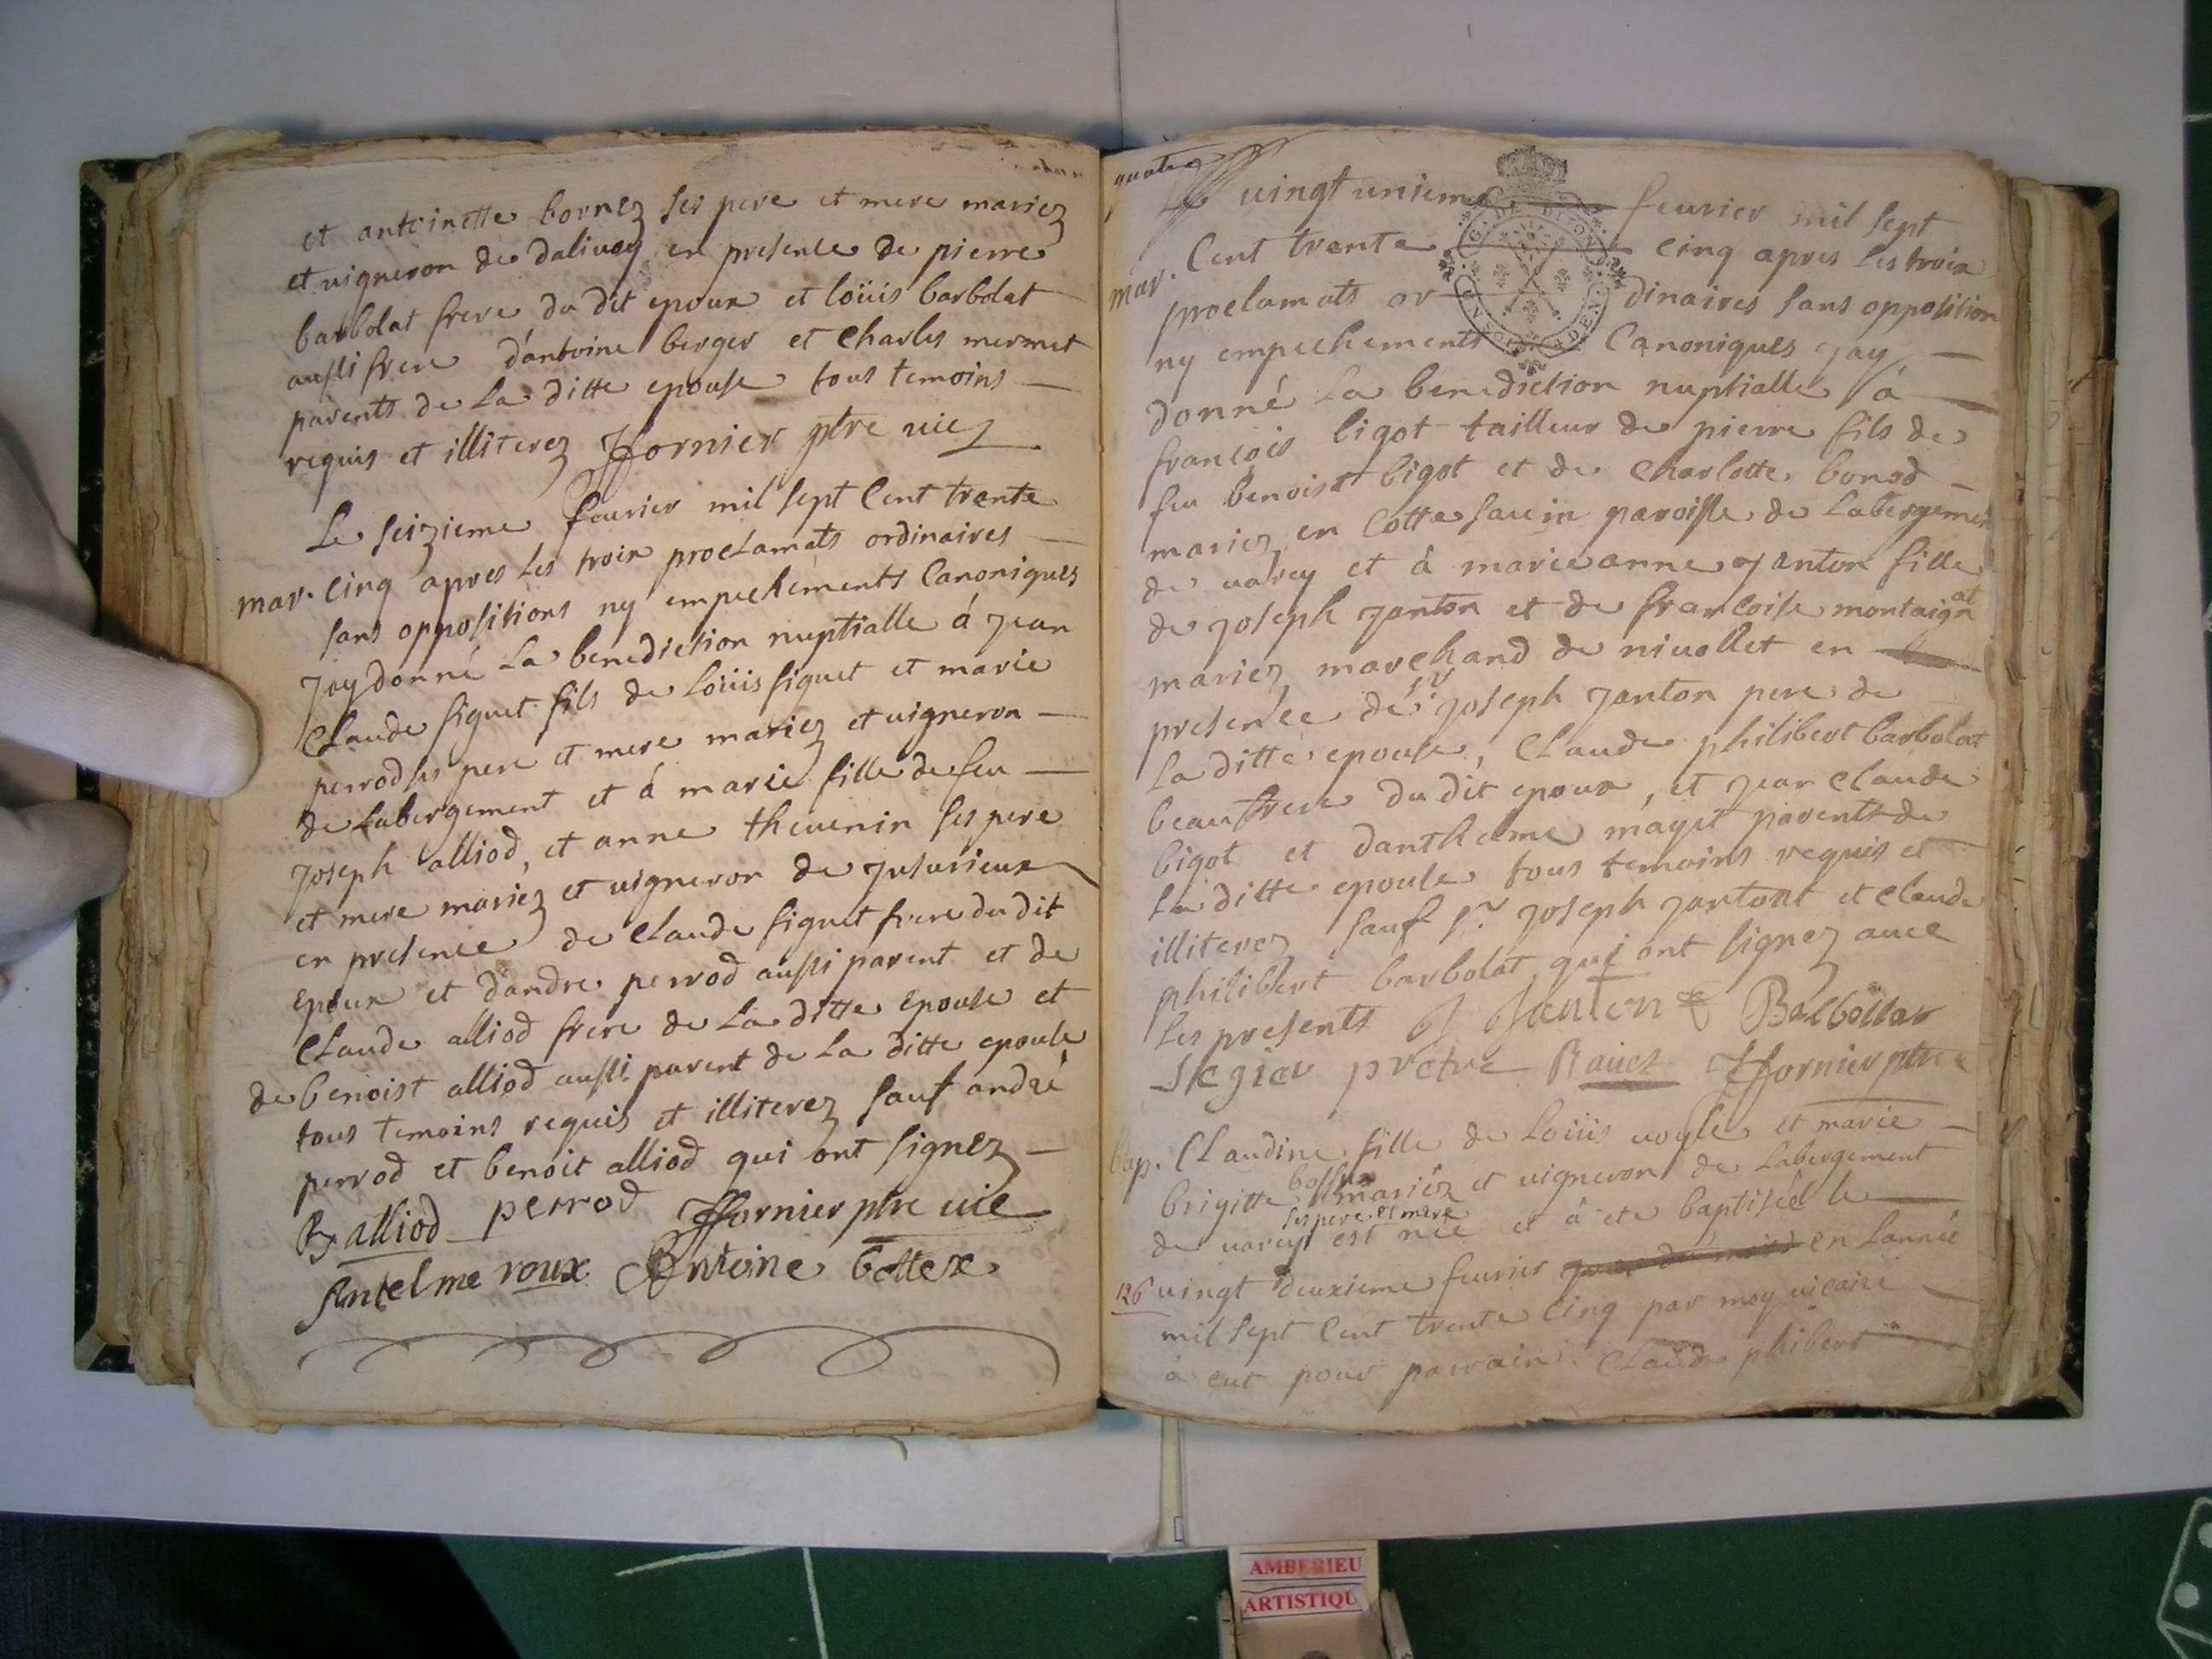 et antoinette bornez ses pere et mere mariez
et uigneron de dalivoy en presence de pierre
barbolat frere du dit epoux et loüis barbolat
aussi frere d'antoine berger et Charles mermet
parents de La ditte epouse tous temoins
requis et illiterez ffornier ptre uic
Le seizieme feurier mil sept Cent trente
mar. Cinq apres les troix proclamats ordinaires
sans oppositions ny empechements Canoniques
Jay donné La benediction nuptialle á jean
Claude figuet fils de Loüis figuet et marie
perrod ses pere et mere mariez et uigneron
de Labergement et á marie fille de feu
Joseph alliod, et anne theuenin ses pere
et mere mariez et uigneron de jusurieux
en presence de Claude figuet frere du dit
epoux et d'andre perrod aussi parent et de
Claude alliod frere de La ditte epouse et
de benoist alliod aussi parent de la ditte epouse
tous temoins requis et illiterez sauf andré
perrod et benoit alliod qui ont signez
B alliod perrod ffornier ptre uic
Antelme roux Antoine bottex
quatre
Le uingt unieme feurier mil sept
mar. Cent trente Cinq apres les troix
proclamats or dinaires sans opposition
ny empechements Canoniques jay
donné La benediction nuptialle á
francois bigot tailleur de pierre fils de
feu benoist bigot et de Charlotte bonod
mariez en Cotte sauin paroisse de Labergemen
de uarey et á marie anne janton fille
de joseph janton et de francoise montaignat
mariez marchand de niuollet en
presence de sr joseph janton pere de
La ditte epouse, Claude philibert barbolat
beaufrere du dit epoux, et jean Claude
bigot et dantheme mayet parents de
La ditte epouse tous temoins requis et
illiterez sauf sr. joseph jantont et Claude
philibert barbolat qui ont signez auec
Les presents J Janton Balbollat
prctre ffornier ptre
bap. Claudine fille de Loüis uogle et marie
brigitte bossu mariez et uigneron de Labergement
ses pere et mere
de uarey est née et á été baptisée le
126 uingt deuxieme feurier en Lanneé
mil sept Cent trente Cinq par moy uicaire
á eut pour parrain Claude phibert
AMBERIEU
ARTISTIQU